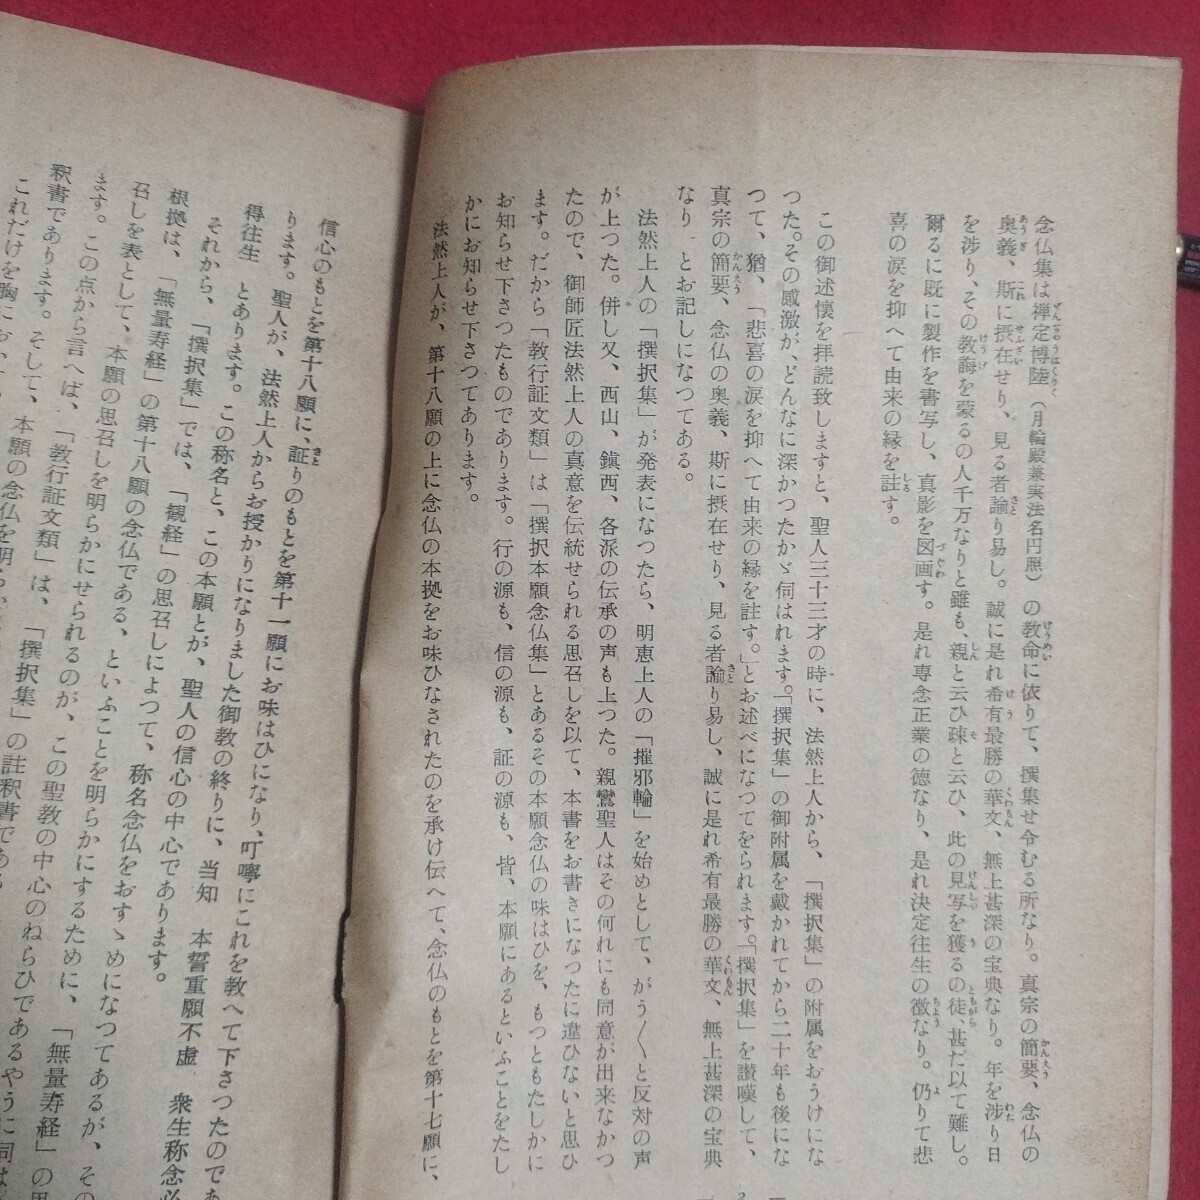 念仏集は禅定博陸（月輪殿兼実法名円照）の教命に依りて、撰集せ令むる所なり。真宗の簡要、念仏の
奥義、斯に摂在せり、見る者諭り易し。誠に是れ希有最勝の華文、無上甚深の宝典なり。年を渉り日
を渉り、その教誨を蒙るの人千万なりと雖も、親と云ひ疎と云ひ、此の見写を獲るの徒、甚だ以て難し。
爾るに既に製作を書写し、真影を図画す。是れ専念正業の徳なり、是れ決定往生の徴なり。仍りて悲
喜の涙を抑へて由来の縁を註す。
この御述懐を拝読致しますと、聖人三十三才の時に、法然上人から、「撰択集」の附属をおうけにな
つた。その感激が、どんなに深かつたかゞ伺はれます。「撰択集」の御附属を戴かれてから二十年も後にな
つて、猶、「悲喜の涙を抑へて由来の縁を註す。」とお述べになつてをられます。「撰択集」を讃嘆して、
真宗の簡要、念仏の奥義、斯に摂在せり、見る者諭り易し、誠に是れ希有最勝の華文、無上甚深の宝典
なり　とお記しになつてある。
法然上人の「撰択集」が発表になつたら、明恵上人の「摧邪輪」を始めとして、がう〱と反対の声
が上つた。併し又、西山、鎮西、各派の伝承の声も上つた。親鸞聖人はその何れにも同意が出来なかつ
たので、御師匠法然上人の真意を伝統せられる思召しを以て、本書をお書きになつたに違ひないと思ひ
ます。だから「教行証文類」は「撰択本願念仏集」とあるその本願念仏の味はひを、もつともたしかに
お知らせ下さつたものであります。行の源も、信の源も、証の源も、皆、本願にあるといふことをたし
かにお知らせ下さつてあります。
法然上人が、第十八願の上に念仏の本拠をお味ひなされたのを承け伝へて、念仏のもとを第十七願に、
信心のもとを第十八願に、証りのもとを第十一願にお味はひになり、叮嚀にこれを教へて下さつたのであ
ります。聖人が、法然上人からお授かりになりました御教の終りに、当知　本誓重願不虚　衆生称念必
得往生　とあります。この称名と、この本願とが、聖人の信心の中心であります。
それから、「撰択集」では、「観経」の思召しによつて、称名念仏をおすゝめになつてあるが、その
根拠は、「無量寿経」の第十八願の念仏である、といふことを明らかにするために、「無量寿経」の思
召しを表として、本願の思召しを明らかにせられるのが、この聖教の中心のねらひであるやうに伺は
ます。この点から言へば、「教行証文類」は、「撰択集」の註釈書である
釈書であります。そして、本願の念仏を明ら
これだけを胸にお